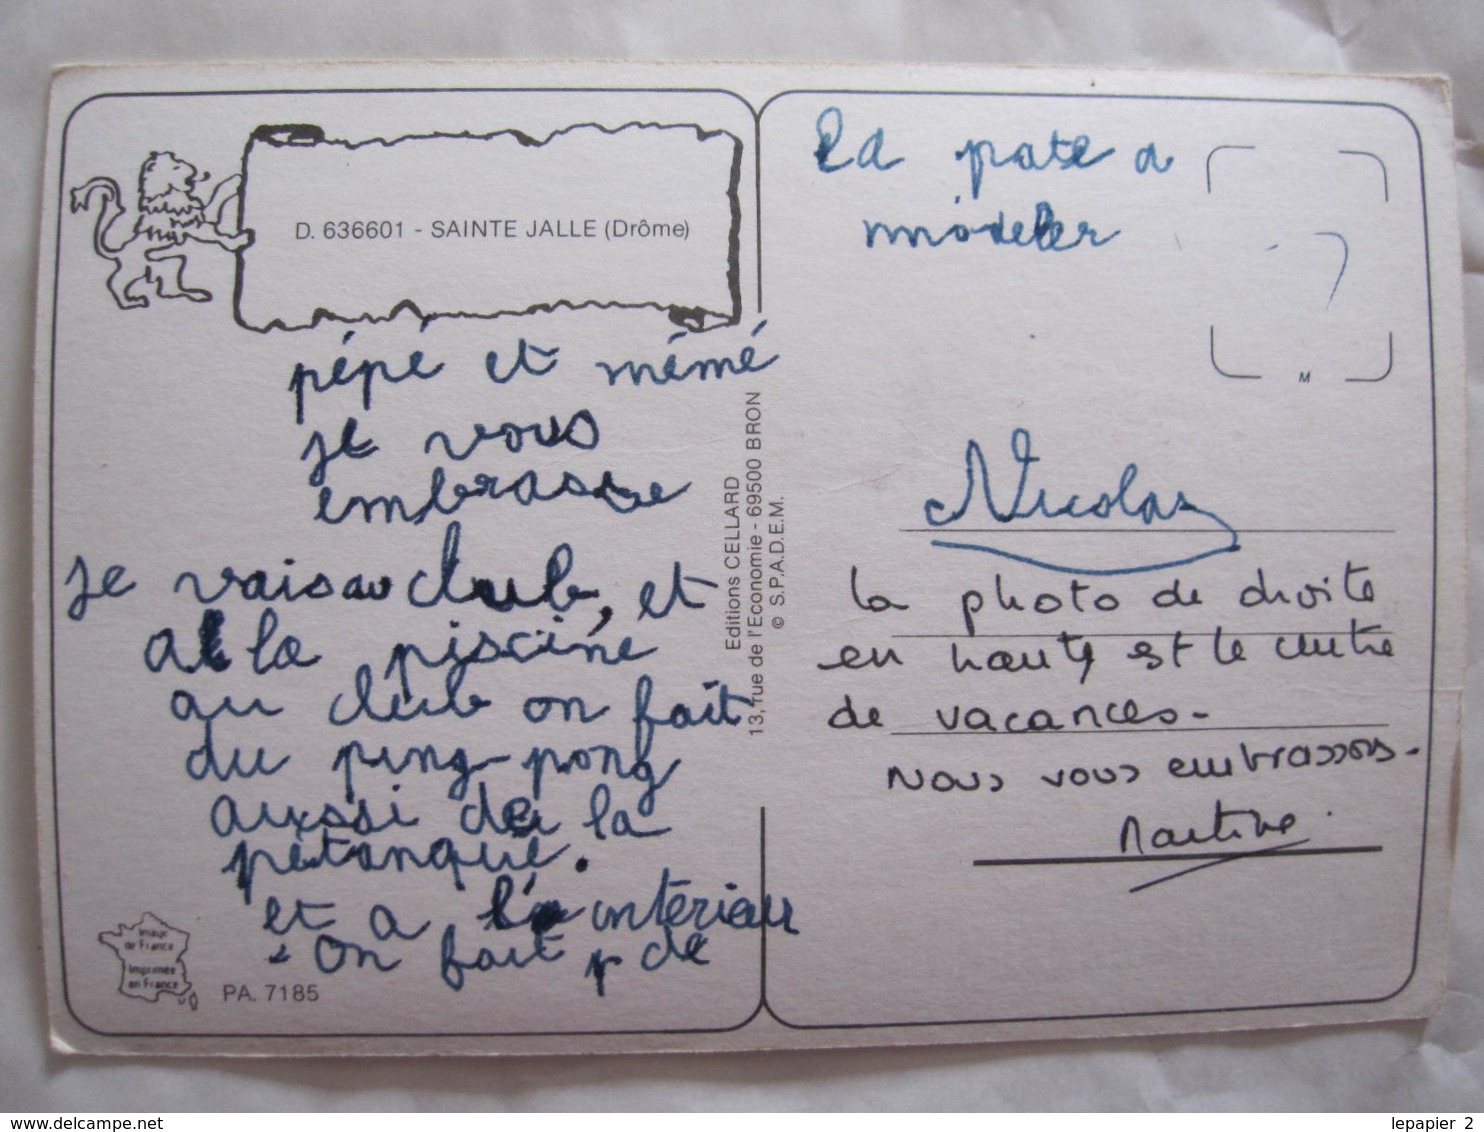 D. 636601 - SAINTE JALLE (Drôme)
pépé et mémé
je vous
embrasse
je vais au club, et
a la piscine
au club on fait
du ping-pong
aussi de la
pétanque.
et a l'intérieur
on fait de
Image
de France
Imprimée
en France
PA. 7185
Editions CELLARD
13, rue de l'Economie - 69500 BRON
© S.P.A.D.E.M.
la pate a
modeler
M
Nicolas
la photo de droite
en haut est le centre
de vacances-
Nous vous embrassons.
Martine.
lepapier_2